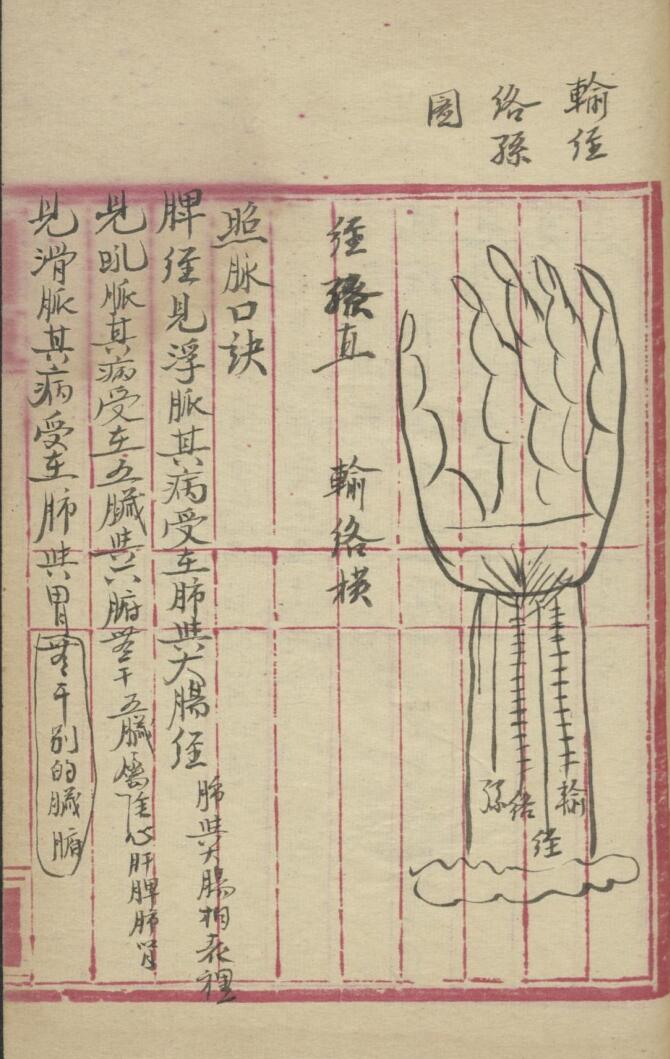 輸經
絡孫
圖
經孫直
輸絡橫
輸
經
絡
孫
照脉口訣
脾經見浮脈其病受在肺與大腸經
肺與大腸相表裡
見脈其病受在五臟與六腑無干五臟屬陰心肝脾肺腎
見滑脈其病受在肺與胃無干别的臟腑